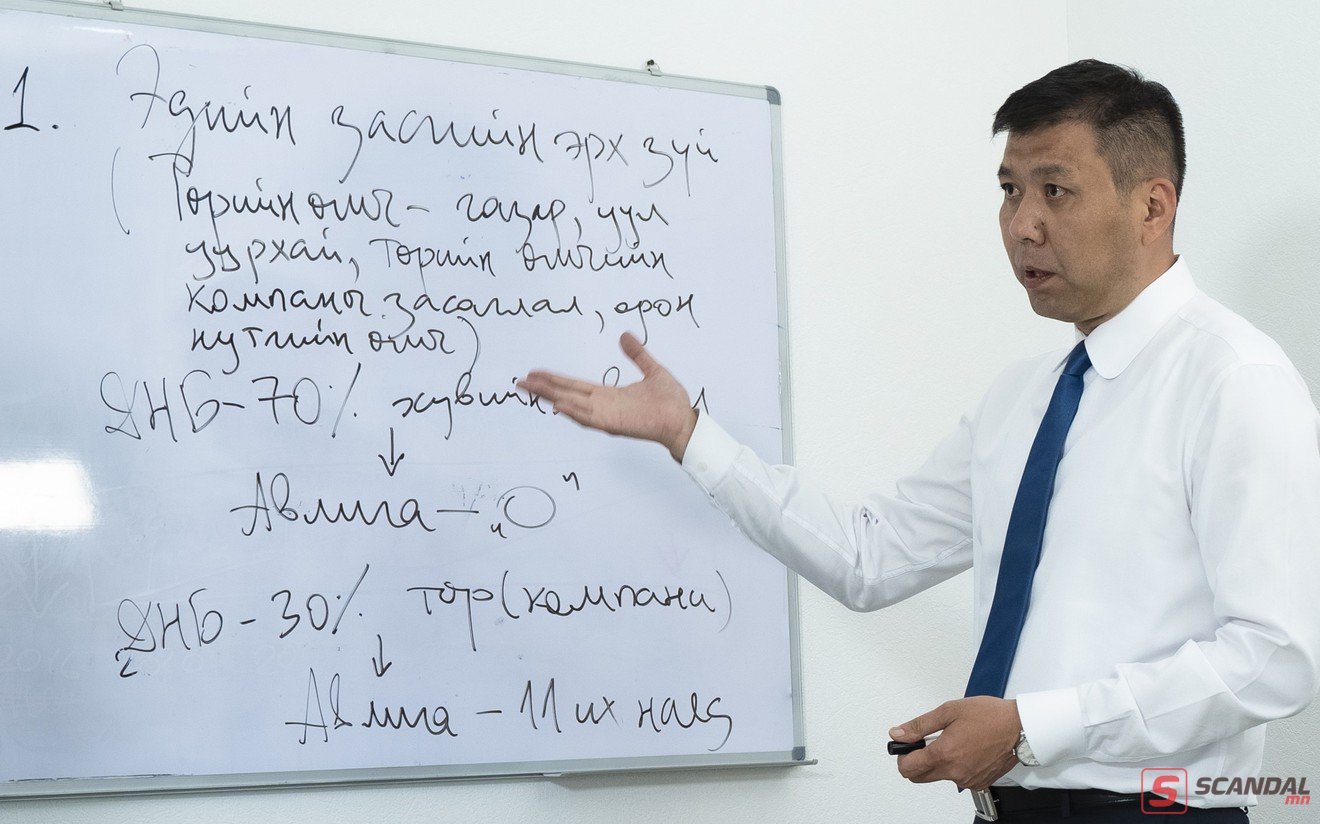 1. Эдийн засгийн эрх зүй
(Төрийн өмч - газар, уул
уурхай, төрийн өмчийн
компаны засаглал, орон
нутгийн өмч)
ДНБ - 70%
Авлига - „О"
ДНБ - 30% төр (компани)
Авлига - 11 их наяд
SCANDAL
mn